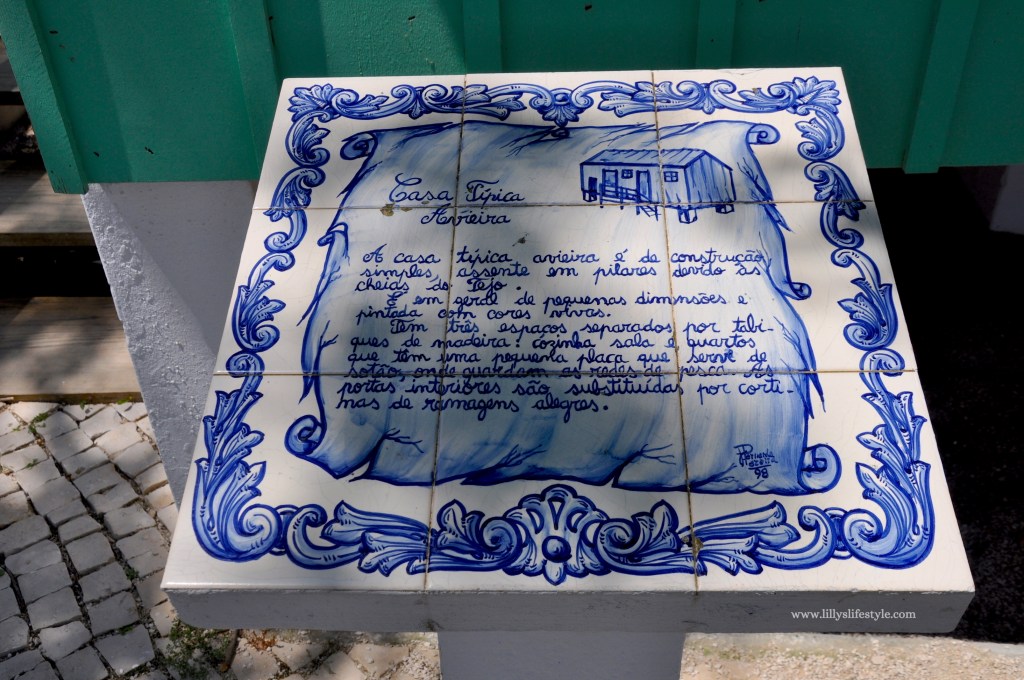 Casa Típica
Avieira
A casa típica avieira é de construção
simples, assente em pilares devido às
cheias do Tejo.
É em geral de pequenas dimensões e
pintada com cores vivas.
Tem três espaços separados por tabi-
ques de madeira: cozinha sala e quartos
que têm uma pequena placa que serve de
sotão, onde guardam as redes de pesca. As
portas interiores são substituídas por corti-
nas de ramagens alegres.
98
www.lillyslifestyle.com